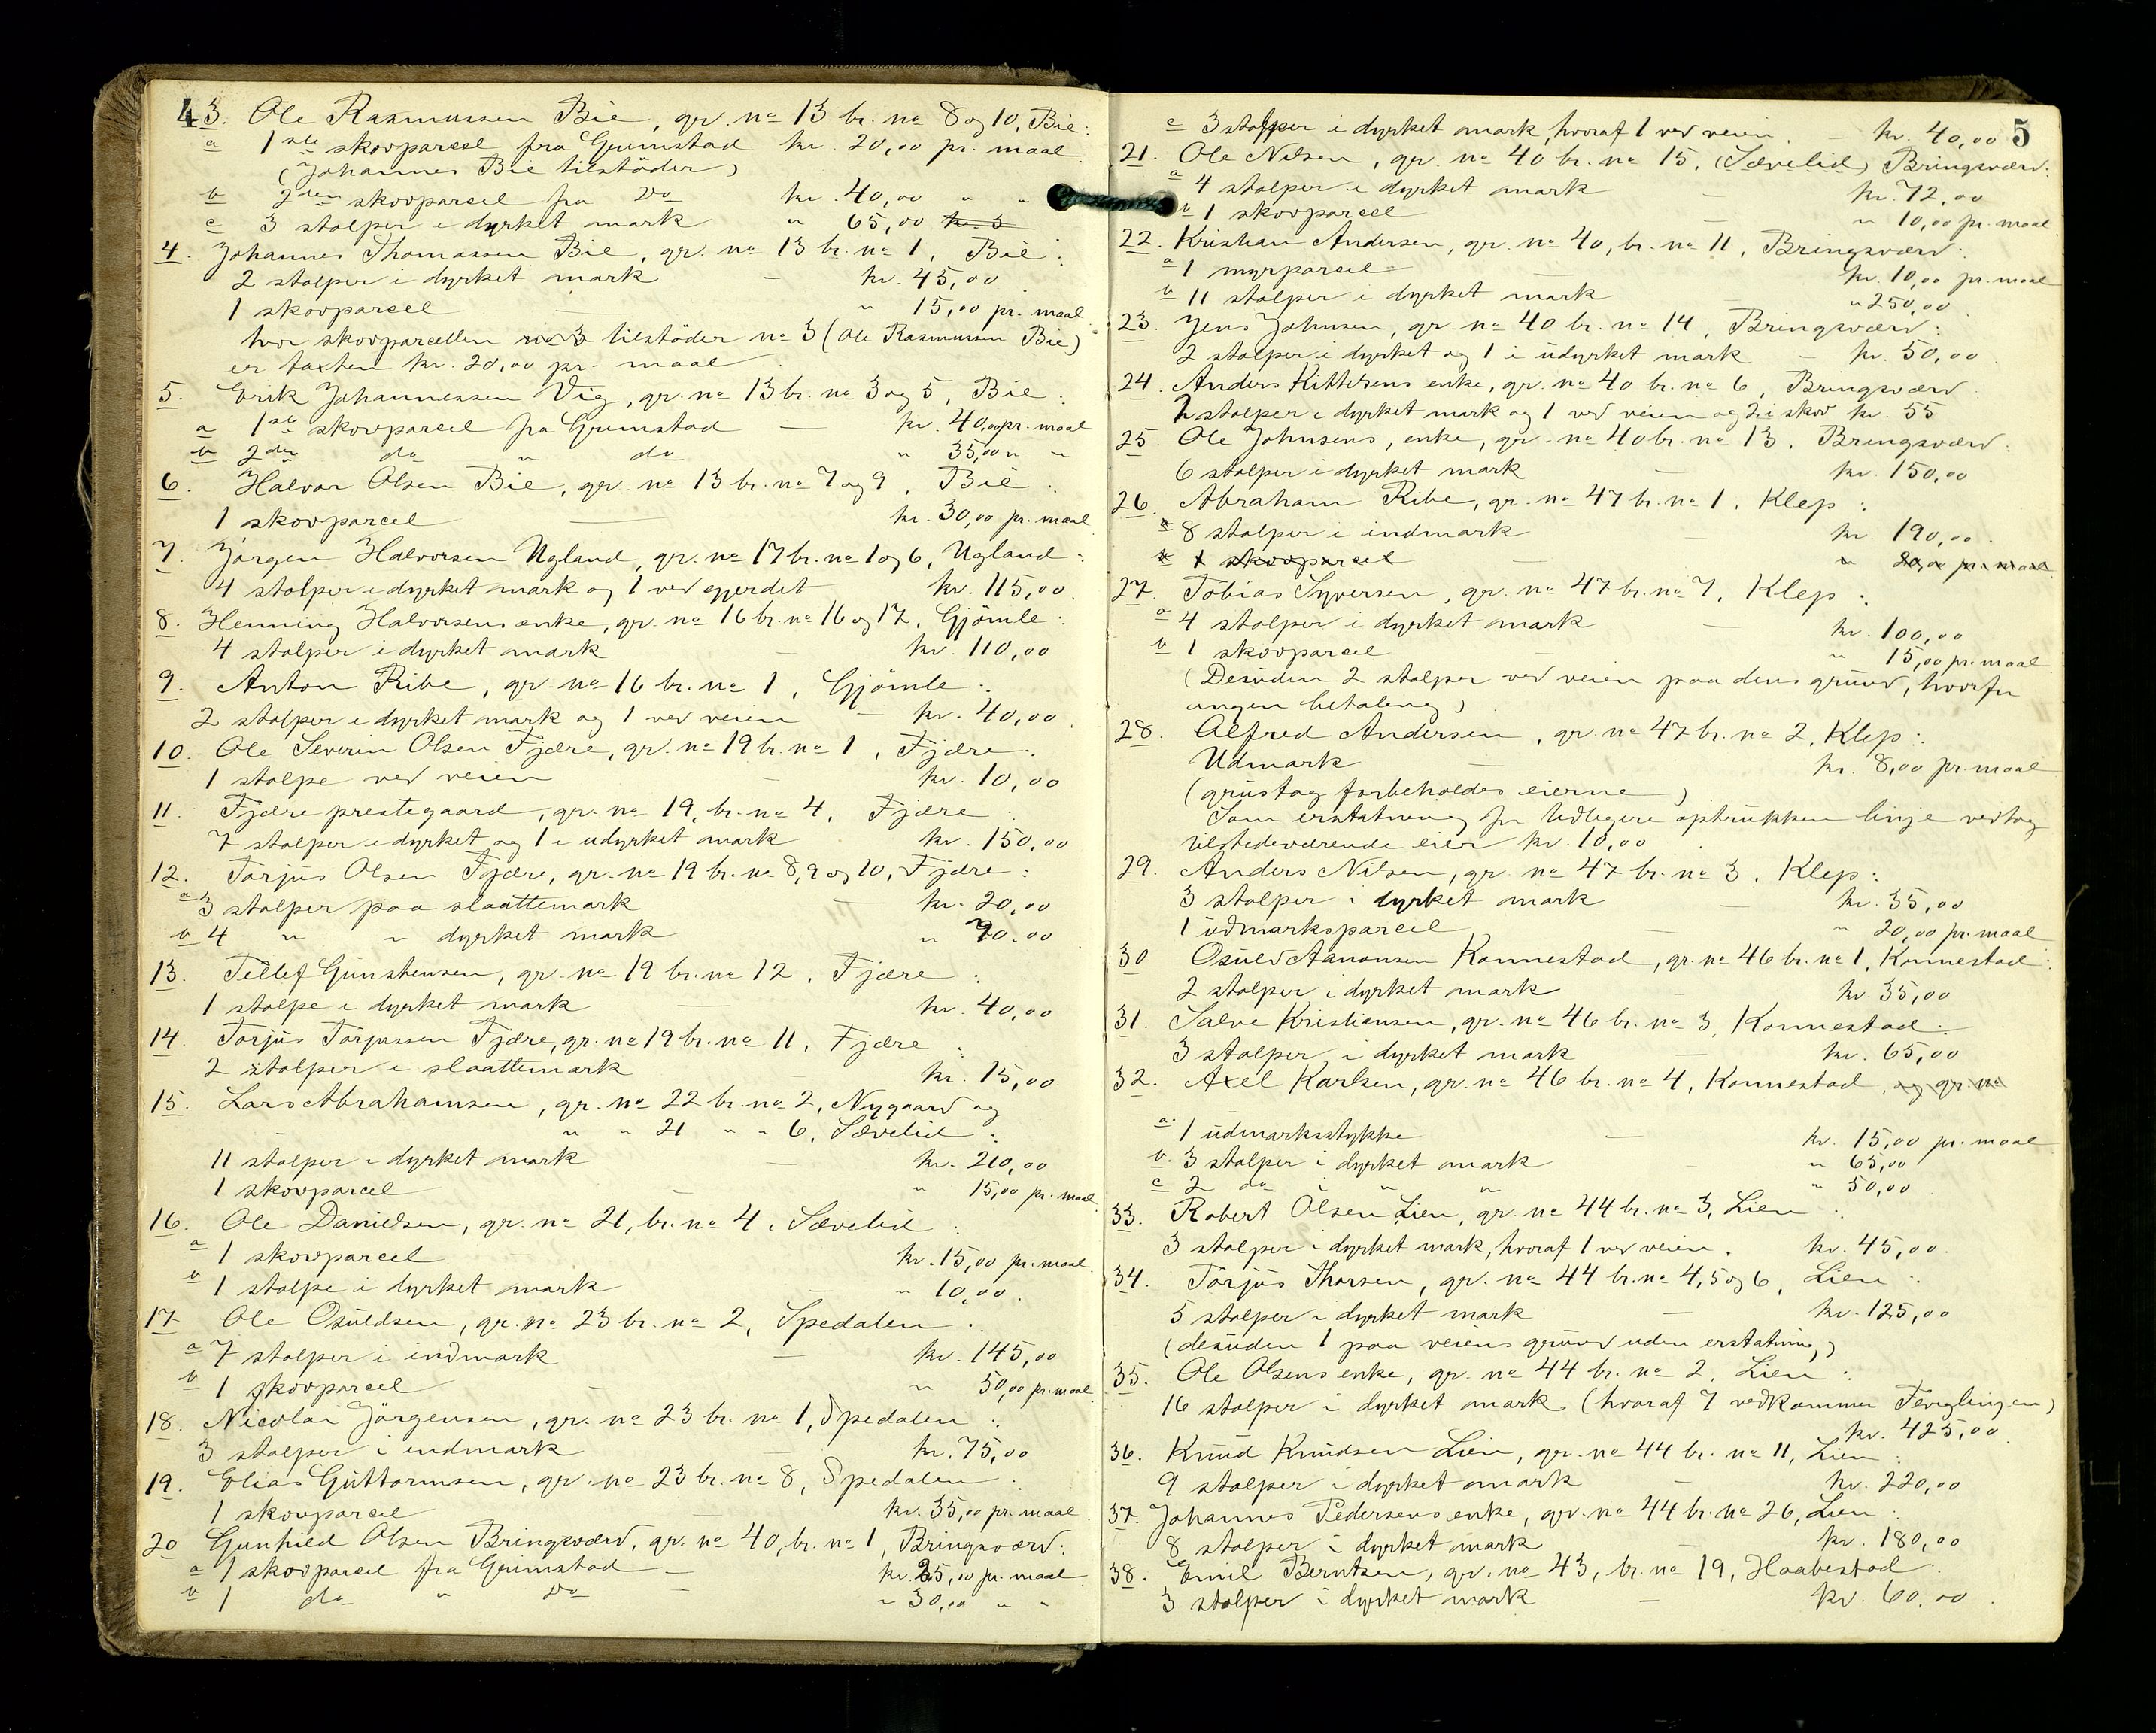 4
3. Ole Rasmussen Bie, gr. no 13 br. no 8 og 10, Bie:
a 1ste skovparcel fra Grimstad kr. 20,00 pr. maal
(Johannes Bie tilstöder)
b 2den skovparcel fra Do kr. 40,00 " "
c 3 stolper i dyrket mark " 65,00 kr. 3
4. Johannes Thomassen Bie, gr. no 13 br. no 1, Bie:
2 stolper i dyrket mark — kr. 45,00
1 skovparcel — " 15,00 pr. maal
hvor skovparcellen no 3 tilstöder no 3 (Ole Rasmussen Bie)
er taxten kr. 20,00 pr. maal
5. Erik Johannessen Vig, gr. no 13 br. no 3 og 5, Bie:
a 1ste skovparcel fra Grimstad — kr. 40,00 pr. maal
b 2den do " do " 35,00 " "
6. Halvor Olsen Bie, gr. no 13 br. no 7 og 9, Bie:
1 skovparcel — kr. 30,00 pr. maal
7. Jörgen Halvorsen Ugland, gr. no 17 br. no 1 og 6, Ugland:
4 stolper i dyrket mark og 1 ved gjerdet kr. 115,00.
8. Henning Halvorsens enke, gr. no 16 br. no 16 og 17, Gjömle:
4 stolper i dyrket mark — kr. 110,00
9. Anton Ribe, gr. no 16 br. no 1, Gjömle:
2 stolper i dyrket mark og 1 ved veien — kr. 40,00.
10. Ole Severin Olsen Fjære, gr. no 19 br. no 1, Fjære:
1 stolpe ved veien — kr. 10,00
11. Fjære prestegaard, gr. no 19, br. no 4, Fjære:
7 stolper i dyrket og 1 i udyrket mark kr. 150,00
12. Torjus Olsen Fjære, gr. no 19 br. no 8, 9 og 10, Fjære:
a 3 stolper paa slaattemark — kr. 20,00
b 4 " " dyrket mark " 70,00
13. Tellef Gunstensen, gr. no 19 br. no 12, Fjære:
1 stolpe i dyrket mark — kr. 40,00
14. Torjus Torjussen Fjære, gr. no 19 br. no 11, Fjære:
2 stolper i slaattemark — kr. 15,00
15. Lars Abrahamsen, gr. no 22 br. no 2, Nygaard og
" " 21 " " 6, Sævelid:
11 stolper i dyrket mark — kr. 210,00
1 skovparcel — " 15,00 pr. maal
16. Ole Danielsen, gr. no 21, br. no 4, Sævelid:
a 1 skovparcel — kr. 15,00 pr. maal
b 1 stolpe i dyrket mark — " 10,00.
17 Ole Osuldsen, gr. no 23 br. no 2, Spedalen:
a 7 stolper i indmark — kr. 145,00
b 1 skovparcel — " 50,00 pr. maal
18. Nicolai Jörgensen, gr. no 23 br. no 1, Spedalen:
3 stolper i indmark — kr. 75,00
19. Elias Guttormsen, gr. no 23 br. no 8, Spedalen:
1 skovparcel — kr. 35,00 pr. maal.
20 Gunhild Olsen Bringsværd, gr. no 40, br. no 1, Bringsværd:
a 1 skovparcel fra Grimstad — kr. 25,00 pr. maal
b 1 do " Do — " 30,00 " "
5
c 3 stolper i dyrket mark, hvoraf 1 ved veien — kr. 40,00
21. Ole Nilsen, gr. no 40 br. no 15, (Sævelid) Bringsværd:
a 4 stolper i dyrket mark — kr. 72,00
b 1 skovparcel — " 10,00 pr. maal
22. Kristian Andersen, gr. no 40, br. no 11, Bringsværd:
a 1 myrparcel — kr. 10,00 pr. maal
b 11 stolper i dyrket mark — " 250,00
23. Jens Johnsen, gr. no 40 br. no 14, Bringsværd:
2 stolper i dyrket og 1 i udyrket mark — kr. 50,00
24. Anders Kittelsens enke, gr. no 40 br. no 6, Bringsværd
2 stolper i dyrket mark og 1 ved veien og 2 i skov kr. 55
25. Ole Johnsens, enke, gr. no 40 br. no 13, Bringsværd:
6 stolper i dyrket mark — kr. 150,00
26. Abraham Ribe, gr. no 47 br. no 1, Klep:
a 8 stolper i indmark — kr. 190,00.
b 1 skovparcel — " 20,00 pr. maal
27. Tobias Syversen, gr. no 47 br. no 7, Klep:
a 4 stolper i dyrket mark — kr. 100,00
b 1 skovparcel — " 15,00 pr. maal
(Desuden 2 stolper ved veien paa dens grund, hvorfor
ingen betaling)
28. Alfred Andersen, gr. no 47 br. no 2, Klep:
Udmark — kr. 8,00 pr. maal
(grustag forbeholdes eierne)
Som erstatning for tidligere optrukken linje vedtog
tilstedeværende eier kr. 10,00.
29. Anders Nilsen, gr. no 47 br. no 3, Klep:
3 stolper i dyrket mark — kr. 35,00
1 udmarksparcel — " 20,00 pr. maal
30 Osuld Aanonsen Konnestad, gr. no 46 br. no 1, Konnestad:
2 stolper i dyrket mark — kr. 35,00
31. Salve Kristiansen, gr. no 46 br. no 3, Konnestad:
3 stolper i dyrket mark — kr. 65,00
32. Axel Karlsen, gr. no 46 br. no 4, Konnestad, og gr. no
a. 1 udmarksstykke — kr. 15,00 pr. maal
b. 3 stolper i dyrket mark — " 65,00
c 2 do i " " " 50,00
33. Robert Olsen Lien, gr. no 44 br. no 3, Lien:
3 stolper i dyrket mark, hvoraf 1 ved veien. kr. 45,00.
34. Torjus Thorsen, gr. no 44 br. no 4, 5 og 6, Lien:
5 stolper i dyrket mark — kr. 125,00
(desuden 1 paa veiens grund uden erstatning)
35. Ole Olsens enke, gr. no 44 br. no 2, Lien:
16 stolper i dyrket mark (hvoraf 7 vedkommer)
kr. 425,00
36. Knud Knudsen Lien, gr. no 44 br. no 11, Lien:
9 stolper i dyrket mark — kr. 220,00
37. Johannes Pedersens enke, gr. no 44 br. no 26, Lien:
8 stolper i dyrket mark kr. 180,00
38. Emil Berntsen, gr. no 43, br. no 19, Haabestad:
3 stolper i dyrket mark — kr. 60,00.